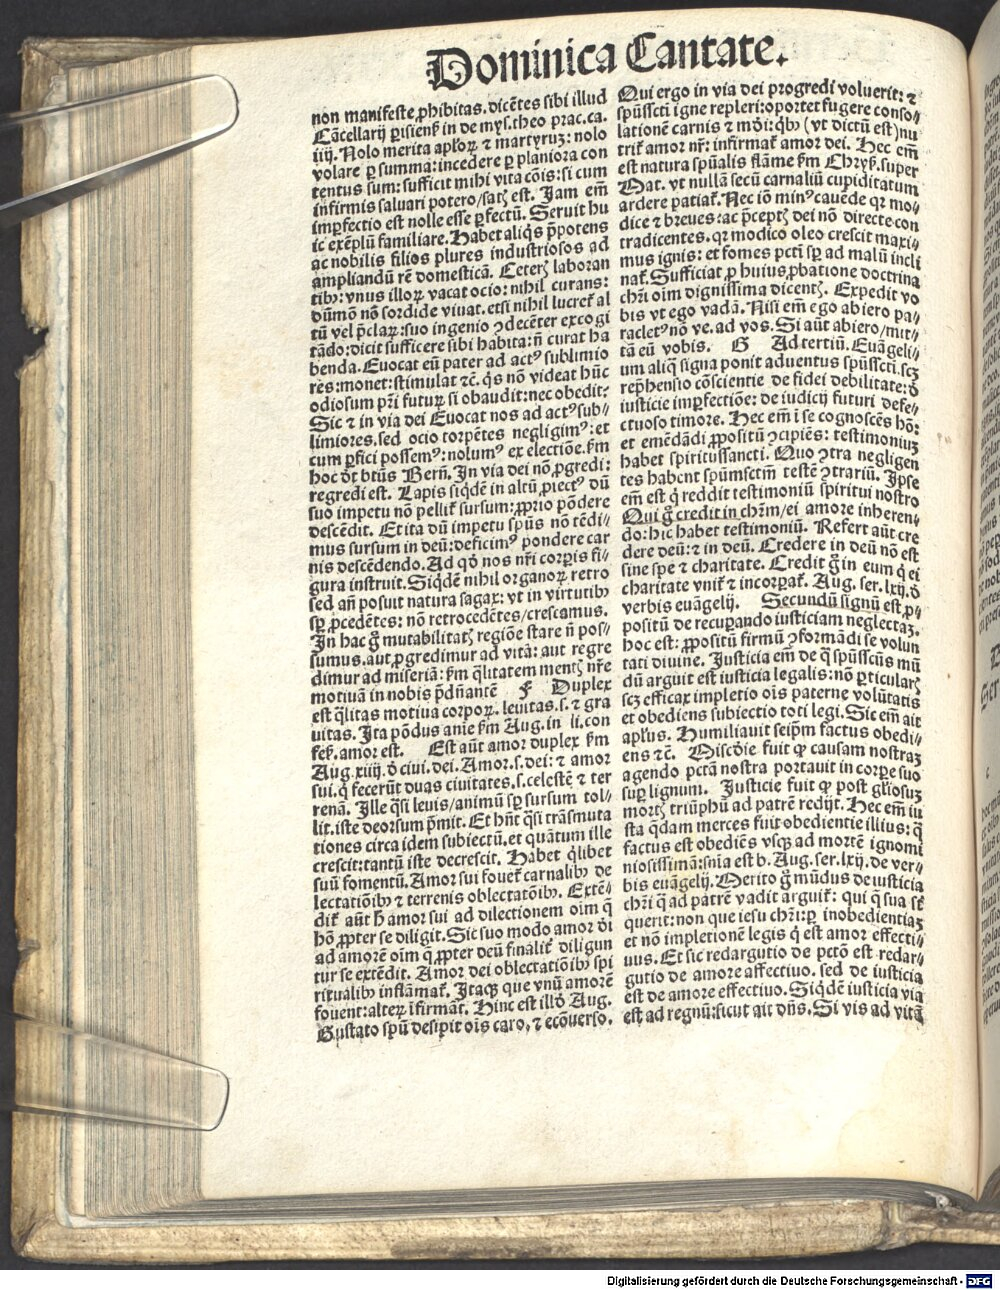 Dominica Cantate.
non manifeste ꝓhibitas. dicẽtes sibi illud
Cãcellarij ꝑisienẜ in de mys. theo prac. ca.
iiij. Nolo merita apl'oꝝ ⁊ martyruꝫ: nolo
volare ꝑ summa: incedere ꝑ planiora con
tentus sum: sufficit mihi vita cõis: si cum
infirmis saluari potero/satꝭ est. Jam em̃
imꝑfectio est nolle esse ꝑfectũ. Seruit hu
ic exẽplũ familiare. Habet aliq̃s p̃potens
ac nobilis filios plures industriosos ad
ampliandũ rẽ domesticã. Ceterꝭ laboran
tibꝰ: vnus illoꝝ vacat ocio: nihil curans:
dũmõ nõ sordide viuat. etsi nihil lucret̃ al
tũ vel p̃claꝝ: suo ingenio ꝯdecẽter excogi
tãdo: dicit sufficere sibi habita: ñ curat ha
benda. Euocat eũ pater ad actꝰ sublimio
res: monet: stimulat ⁊c̃. q̃s nõ videat hũc
odiosum pr̃i futuꝝ si obaudit: nec obedit?
Sic ⁊ in via dei Euocat nos ad actꝰ sub⸗
limiores. sed ocio torpẽtes negligimꝰ: et
cum ꝑfici possemꝰ: nolumꝰ ex electiõe. ẜm
hoc ðt btũs Bern̄. In via dei nõ ꝓgredi:
regredi est. Lapis siq̃dẽ in altũ ꝓiectꝰ dũ
suo impetu nõ pellit̃ sursum: ꝓprio põdere
descẽdit. Et ita dũ impetu sp̃us nõ tẽdi⸗
mus sursum in deũ: deficimꝰ pondere car
nis descẽdendo. Ad qð nos nr̃i corꝑis fi⸗
gura instruit. Siq̃dẽ nihil organoꝝ retro
sed añ posuit natura sagax: vt in virtutibꝰ
sꝑ ꝓcedẽtes: nõ retrocedẽtes/crescamus.
In hac g̃ mutabilitatꝭ regiõe stare ñ pos⸗
sumus. aut ꝓgredimur ad vitã: aut regre
dimur ad miseriã: ẜm q̃litatem mentꝭ nr̃e
motiuã in nobis p̃dñantẽ F Duplex
est q̃litas motiua corpoꝝ. leuitas. s. ⁊ gra
uitas. Ita põdus anie ẜm Aug. in li. con
feẜ. amor est. Est aũt amor duplex ẜm
Aug. xiiij. ð ciui. dei. Amor. s. dei: ⁊ amor
sui. q̃ fecerũt duas ciuitates. s. celestẽ ⁊ ter
renã. Ille q̃si leuis/animũ sꝑ sursum tol⸗
lit. iste deorsum p̃mit. Et hñt q̃si trãsmuta
tiones circa idem subiectũ. et quãtum ille
crescit: tantũ iste decrescit. Habet q̃libet
suũ fomentũ. Amor sui fouet̃ carnalibꝰ de
lectatiõibꝰ ⁊ terrenis oblectatõibꝰ. Extẽ⸗
dit̃ aũt h̃ amor sui ad dilectionem oĩm q̃
hõ ꝓpter se diligit. Sic suo modo amor ði
ad amorẽ oĩm q̃ ꝓpter deũ finalit̃ diligun
tur se extẽdit. Amor dei oblectatiõibꝰ spi
ritualibꝰ inflãmat̃. Itaqꝫ que vnũ amorẽ
fouent: alteꝝ ĩfirmãt. Hinc est illð Aug.
Gustato spũ desipit oĩs caro, ⁊ ecõuerso.
Qui ergo in via dei progredi voluerit: ⁊
spũssc̃ti igne repleri: oportet fugere conso⸗
lationẽ carnis ⁊ mõi: qbꝰ (vt dictũ est) nu
trit̃ amor nr̃: infirmat̃ amor dei. Hec em̃
est natura spũalis flãme ẜm Chryẜ. super
Mat. vt nullã secũ carnaliũ cupiditatum
ardere patiat̃. Nec iõ minꝰ cauẽde qꝛ mo⸗
dice ⁊ breues: ac p̃ceptꝭ dei nõ directe con
tradicentes. qꝛ modico oleo crescit maxi⸗
mus ignis: et fomes pctĩ sꝑ ad malũ incli
nat̃. Sufficiat ꝑ huius ꝓbatione doctrina
chr̃i oĩm dignissima dicentꝭ. Expedit vo
bis vt ego vadã. Nisi em̃ ego abiero pa⸗
racletꝰ nõ ve. ad vos. Si aũt abiero/mit⸗
tã eũ vobis. G Ad tertiũ. Euãgeli⸗
um aliq̃ signa ponit aduentus spũssc̃ti. scꝫ
rep̃hensio cõscientie de fidei debilitate: ð
iusticie imꝑfectiõe: de iudicij futuri defe⸗
ctuoso timore. Hec em̃ ĩ se cognoscẽs hõ:
et emẽdãdi ꝓpositũ ꝯcipiẽs: testimoniuꝫ
habet spiritussancti. Quo ꝯtra negligen
tes habent spũmsctĩm testẽ ꝯtrariũ. Ipse
em̃ est q̃ reddit testimoniũ spiritui nostro
Qui g̃ credit in chr̃m/ei amore inheren⸗
do: hic habet testimoniũ. Refert aũt cre
dere deũ: ⁊ in deũ. Credere in deũ nõ est
sine spe ⁊ charitate. Credit g̃ in eum q̃ ei
charitate vnit̃ ⁊ incorꝑat̃. Aug. ser. lxij. ð
verbis euãgelij. Secundũ signũ est ꝓ⸗
positũ de recuꝑando iusticiam neglectaꝫ.
hoc est: ꝓpositũ firmũ ꝯformãdi se volun
tati diuine. Justicia em̃ de q̃ spũsscũs mũ
dũ arguit est iusticia legalis: nõ ꝑticularꝭ
scꝫ efficax impletio oĩs paterne volũtatis
et obediens subiectio toti legi. Sic em̃ ait
apl'us. Humiliauit seip̃m factus obedi⸗
ens ⁊c̃. Miscðie fuit qꝫ causam nostraꝫ
agendo pctã nostra portauit in corꝑe suo
suꝑ lignum. Justicie fuit qꝫ post gl'iosuꝫ
mortꝭ triũphũ ad patrẽ redijt. Hec em̃ iu
sta q̃dam merces fuit obedientie illius: q̃
factus est obediẽs vsqꝫ ad mortẽ ignomi
niosissimã: snĩa est b. Aug. ser. lxij. de ver⸗
bis euãgelij. Merito g̃ mũdus de iusticia
chr̃i q̃ ad patrẽ vadit arguit̃: qui q̃ sua st̃
querit: non que iesu chr̃i: ꝑ inobedientiaꝫ
et nõ impletionẽ legis q̃ est amor effecti⸗
uus. Et sic redargutio de pctõ est redar⸗
gutio de amore affectiuo. sed de iusticia
est de amore effectiuo. Siq̃dẽ iusticia via
est ad regnũ: sicut ait dñs. Si vis ad vitã
Digitalisierung gefördert durch die Deutsche Forschungsgemeinschaft - DFG